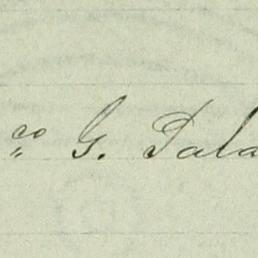 co G. Pala